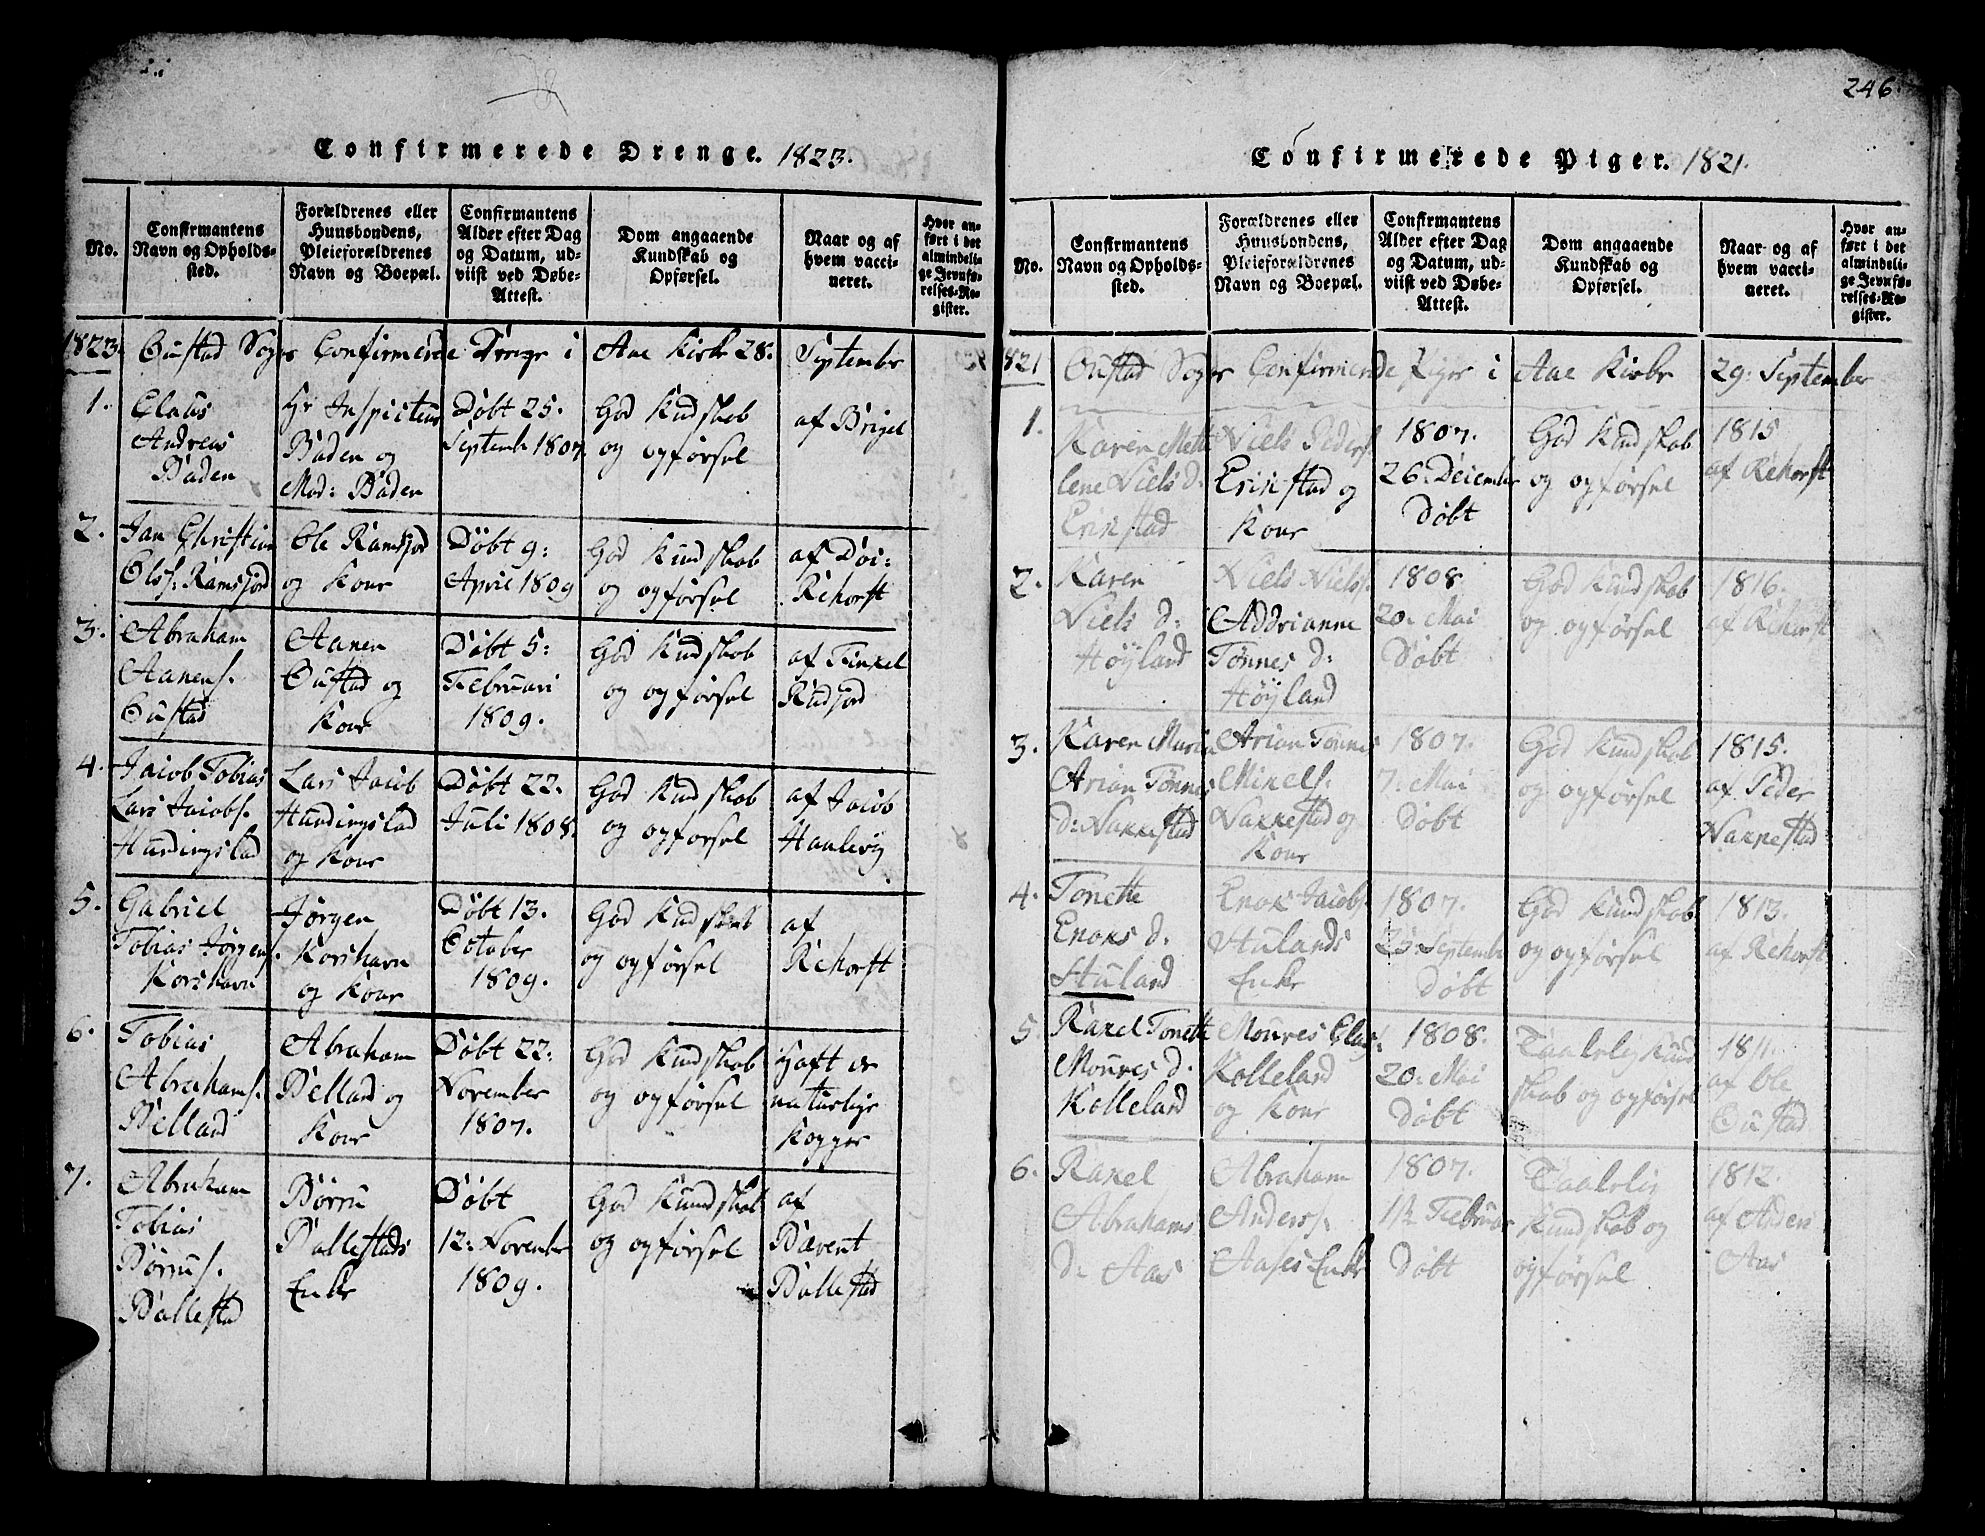 Confirmerede Drenge. 1823.
No.
Confirmantens
Navn og Opholds-
sted.
Forældrenes eller
Huusbondens,
Pleieforældrenes
Navn og Boepæl.
Confirmantens
Alder efter Dag
og Datum, ud-
viist ved Døbe-
Attest.
Dom angaaende
Kundskab og
Opførsel.
Naar og af
hvem vacci-
neret.
Hvor an-
ført i det
almindeli-
ge Jevnfø-
relses-Re-
gister.
1823. Oustad Sogns Confirmerede Drenge i Aae Kirke 28. September
1.
Claus
Andreas
Baden
Hr Inspicteur
Baden og
Mad: Baden
Døbt 25.
September 1807
God Kundskab
og opførsel
af
2.
Jan Christian
Ols: Ramsjord
Ole Ramsjord
og Kone
Døbt 9:
April 1809
God Kundskab
og opførsel
af
Rehorst
3.
Abraham
Aanens.
Oustad
Aanen
Oustad og
Kone
Døbt 5:
Februari
1809.
God Kundskab
og opførsel
af
4.
Jacob Tobias
Lars Jacobs.
Lars Jacob
og Kone
Døbt 22.
Juli 1808.
God Kundskab
og opførsel
af Jacob
5.
Gabriel
Tobias Jørgens.
Korshavn
Jørgen
Korshavn
og Kone
Døbt 13.
October
1809.
God Kundskab
og opførsel
af
Rehorst
6.
Tobias
Abrahams.
Delland
Abraham
Delland og
Kone
Døbt 22:
November
1807.
God Kundskab
og opførsel
Haft de
naturlige
Kopper
7.
Abraham
Tobias
Børrus.
Ballestad
Børru
Ballestads
Enke
Døbt
12: November
1809.
God Kundskab
og opførsel
af
Bavent
Ballestad
246.
Confirmerede Piger. 1821.
No.
Confirmantens
Navn og Opholds-
sted.
Forældrenes eller
Huusbondens,
Pleieforældrenes
Navn og Boepæl.
Confirmantens
Alder efter Dag
og Datum, ud-
viist ved Døbe-
Attest.
Dom angaaende
Kundskab og
Opførsel.
Naar og af
hvem vacci-
neret.
Hvor an-
ført i det
almindeli-
ge Jevnfø-
relses-Re-
gister.
1821 Oustad Sogns Confirmerede Piger i Aae Kirke 29. September
1.
Karen Mette
lene Niels d:
Erikstad
Niels Peders.
Erikstad og
Kone
1807.
26. December
Døbt
God Kundskab
og opførsel
1815
af Rehorst
2.
Karen
Niels d:
Høyland
Niels Niels.
Addrianne
Tønnes d:
Høyland
1808.
20. Mai
Døbt
God Kundskab
og opførsel
1816.
af Rehorst
3.
Karen Maria
Arian Tønnes
d: Nakkestad
Arian Tønnes
Mikels.
Nakkestad og
Kone
1807.
7: Mai
Døbt
God Kundskab
og opførsel
1815.
af Peder
Nakkestad
4.
Tonette
Enoks d.
Huland
Enok Jacobs.
Hulands
Enke
1807.
September
Døbt
God Kundskab
og opførsel
1813.
af Rehorst
5.
Rakel Tonette
Moures d.
Kolleland
Moures Clas.
Kolleland
og Kone
1808.
20. Mai
Døbt
Taalelig Kund
skab og opførsel
1811.
af Ole
Oustad
6.
Rakel
Abrahams
d: Aas
Abraham
Anders.
Aases Enke
1807.
Februar
Døbt
Taalelig
Kundskab og
opførsel
1812.
af Anders
Aas